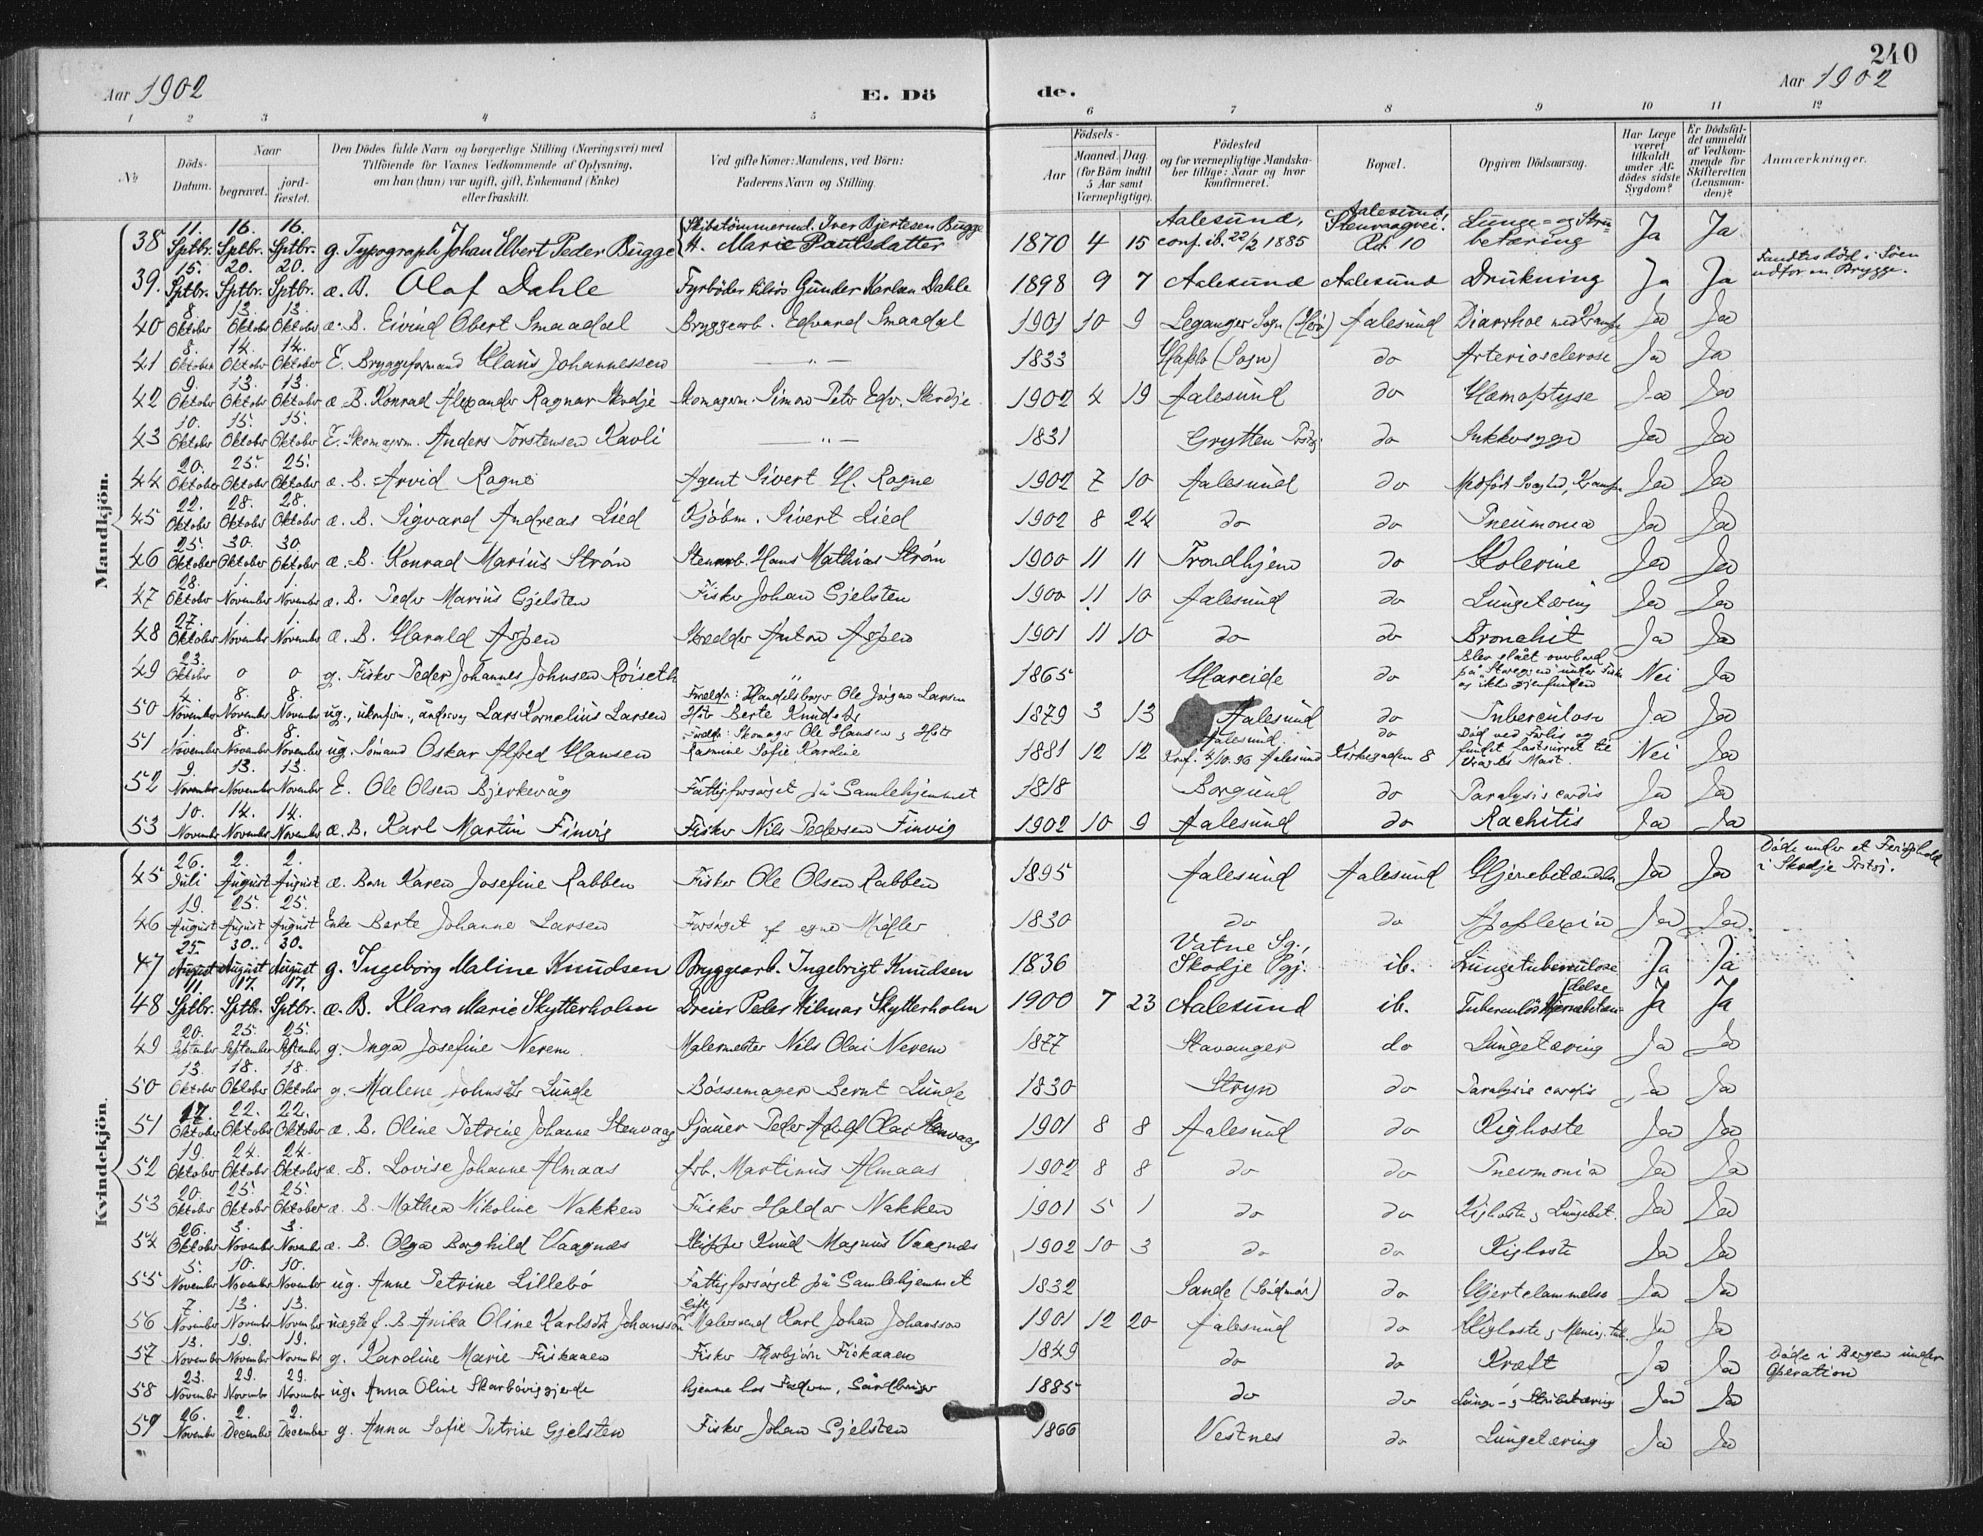 240
Aar 1902
E. Dö
de.
Aar 1902
1 2 3 4 5 6 7 8 9 10 11 12
No
Döds-Datum.
Naar
begravet.
jord-fæstet.
Den Dödes fulde Navn og borgerlige Stilling (Næringsvei) med
Tilföiende for Voxnes Vedkommende af Oplysning,
om han (hun) var ugift, gift, Enkemand (Enke)
eller fraskilt.
Ved gifte Koner: Mandens, ved Börn:
Faderens Navn og Stilling.
Födsels-
Aar
Maaned. Dag.
(for Börn indtil
5 Aar samt
Værnepligtige).
Födested
og for værnepligtige Mandska-
ber tillige: Naar og hvor
konfirmeret.
Bopæl.
Opgiven Dödsaarsag.
Har Læge
været
tilkaldt
under Af-
dödes sidste
Sygdom?
Er Dödsfal-
det anmeldt
af Vedkom-
mende for
Skifteretten
(Lensman-
den)?
Anmærkninger.
Mandkjön.
38 11. Sptbr. 16. Sptbr. 16. Sptbr. g. Typograph Johan Elbert Peder Bugge Skibstømmermd. Iver Bjertesen Bugge H. Marie Paulsdatter 1870 4 15 Aalesund, conf. ib. 22/2 1885 Aalesund, Stenvaagvei. Rd. 10 Lunge- og Stru- betæring Ja Ja
39. 15. Sptbr. 20. Sptbr. 20. Sptbr. æ. B. Olaf Dahle Fyrbøder tilsøs Gunder Karlsen Dahle 1898 9 7 Aalesund Aalesund Drukning Ja Ja Fandtes død i Søen udfor en Brygge.
40 8. Oktober 13. Oktober 13. Oktober æ. B. Eivind Obert Smaadal Bryggearb. Edvard Smaadal 1901 10 9 Leganger Sogn (Herø) Aalesund Diarrhoe med Krampe Ja Ja
41 8. Oktober 14. Oktober 14. Oktober E. Bryggeformand Klaus Johannessen — „ — 1833 Hafslo (Sogn) do Arteriosclerose Ja Ja
42 9. Oktober 13. Oktober 13. Oktober æ. B. Konrad Alexander Ragnar Skodje Skomagerm. Simon Peter Edv. Skodje 1902 4 19 Aalesund do Hæmoptyse Ja Ja
43 10. Oktober 15. Oktober 15. Oktober E. Skomagerm. Anders Torstensen Kavli — „ — 1831 Grytten Prstgj. do Sukkersyge Ja Ja
44 20. Oktober 25. Oktober 25. Oktober æ. B. Arvid Rogne Agent Sivert H. Rogne 1902 7 10 Aalesund do Medfødt Svaghed, Krampe Ja Ja
45 22. Oktober 28. Oktober 28. Oktober æ. B. Sigvard Andreas Lied Kjøbm. Sivert Lied 1902 8 24 do do Pneumonia Ja Ja
46 25. Oktober 30. Oktober 30. Oktober æ. B. Konrad Marius Strøm Stenarb. Hans Mathias Strøm 1900 11 11 Trondhjem do Kolerine Ja Ja
47 28. Oktober 1. November 1. November æ. B. Peder Marius Gjelsten Fisker Johan Gjelsten 1900 11 10 Aalesund do Lungetæring Ja Ja
48 27. Oktober 1. November 1. November æ. B. Harald Aspen Skrædder Anton Aspen 1901 11 10 do do Bronchit Ja Ja
49 23. Oktober 0 0 g. Fisker Peder Johannes Johnsen Røiseth „ 1865 Hareide do Blev slået overbord på Storegg under Fiske og ikke gjenfunden Nei Ja
50 4. November 8. November 8. November ug., ukonfirm., åndssvag Lars Kornelius Larsen Forældr: Handelsborger Ole Jørgen Larsen Hstr Berte Knudsdtr 1879 3 13 Aalesund do Tuberculose Ja Ja
51 1. November 8. November 8. November ug. Sømand Oskar Alfred Hansen Forældr: Skomager Ole Hansen og Hstr Rasmine Sofie Karoline 1881 12 12 Aalesund Konf. 4/10. 96 Aalesund do Kirkegaden 8 Død ved Forlis og fundet fastsurret til Vragets Mast. Nei Ja
52 9. November 13. November 13. November E. Ole Olsen Bjerkevåg Fattigforsørget på Samlehjemmet 1818 Borgund do Paralysis cordis Ja Ja
53 10. November 14. November 14. November æ. B. Karl Martin Finvig Fisker Nils Pedersen Finvig 1902 10 9 Aalesund do Rachitis Ja Ja
Kvindekjön.
45 26. Juli 2. August 2. August æ. Barn Karen Josefine Rabben Fisker Ole Olsen Rabben 1895 Aalesund Aalesund Hjernebetændelse Ja Ja Døde under et Ferieophold i Skodje Prstgj.
46 19. August 25. August 25. August Enke Berte Johanne Larsen Forsørget af egne Midler 1830 do do Apoplexia Ja Ja
47 25. August 30. August 30. August g. Ingeborg Maline Knudsen Bryggearb. Ingebrigt Knudsen 1836 Vatne Sg., Skodje Pgj. ib. Lungetuberculose Ja Ja
48 11. Sptbr. 17. Sptbr. 17. Sptbr. æ. B. Klara Marie Skytterholm Dreier Peder Hilmar Skytterholm 1900 7 23 Aalesund ib. Tuberculøs Hjernebetæn- delse Ja Ja
49 20. September 25. September 25. September g. Inga Josefine Nerem Malermester Nils Olai Nerem 1877 Stavanger do Lungetæring Ja Ja
50 13. Oktober 18. Oktober 18. Oktober g. Malene Johnsdtr Lunde Bøssemager Bernt Lunde 1830 Stryn do Paralysis cordis Ja Ja
51 17. Oktober 22. Oktober 22. Oktober æ. B. Oline Petrine Johanne Stenvaag Sjauer Peder Adolf Olai Stenvaag 1901 8 8 Aalesund do Kighoste Ja Ja
52 19. Oktober 24. Oktober 24. Oktober æ. B. Lovise Johanne Almaas Arb. Martinus Almaas 1902 8 8 do do Pneumonia Ja Ja
53 20. Oktober 25. Oktober 25. Oktober æ. B. Mathea Nikoline Nakken Fisker Haldor Nakken 1901 5 1 do do Kighoste og Lungebet. Ja Ja
54 26. Oktober 3. November 3. November æ. B. Olga Borghild Vaagnæs Skipper Knud Magnus Vaagnæs 1902 10 3 do do Kighoste Ja Ja
55 5. November 10. November 10. November ug. Anne Petrine Lillebø Fattigforsørget på Samlehjemmet 1832 Sande (Søndmør) do Hjertelammelse Ja Ja
56 7. November 13. November 13. November uægte f. B. Anika Oline Karlsdtr Johansson Gift Malersvend Karl Johan Johansson 1901 12 20 Aalesund do Kighoste og Mening. tub. Ja Ja
57 13. November 19. November 19. November g. Karoline Marie Fiskaaen Fisker Thorbjørn Fiskaaen 1849 do do Kræft Ja Ja Døde i Bergen under Operation
58 23. November 29. November 29. November ug. Anna Oline Skarbøviggjerde hjemme hos Faderen, 1885 do do Lunge- og Strubetæring Ja Ja
59 26. November 2. December 2. December g. Anna Sofie Petrine Gjelsten Fisker Johan Gjelsten 1866 Vestnes do Lungetæring Ja Ja